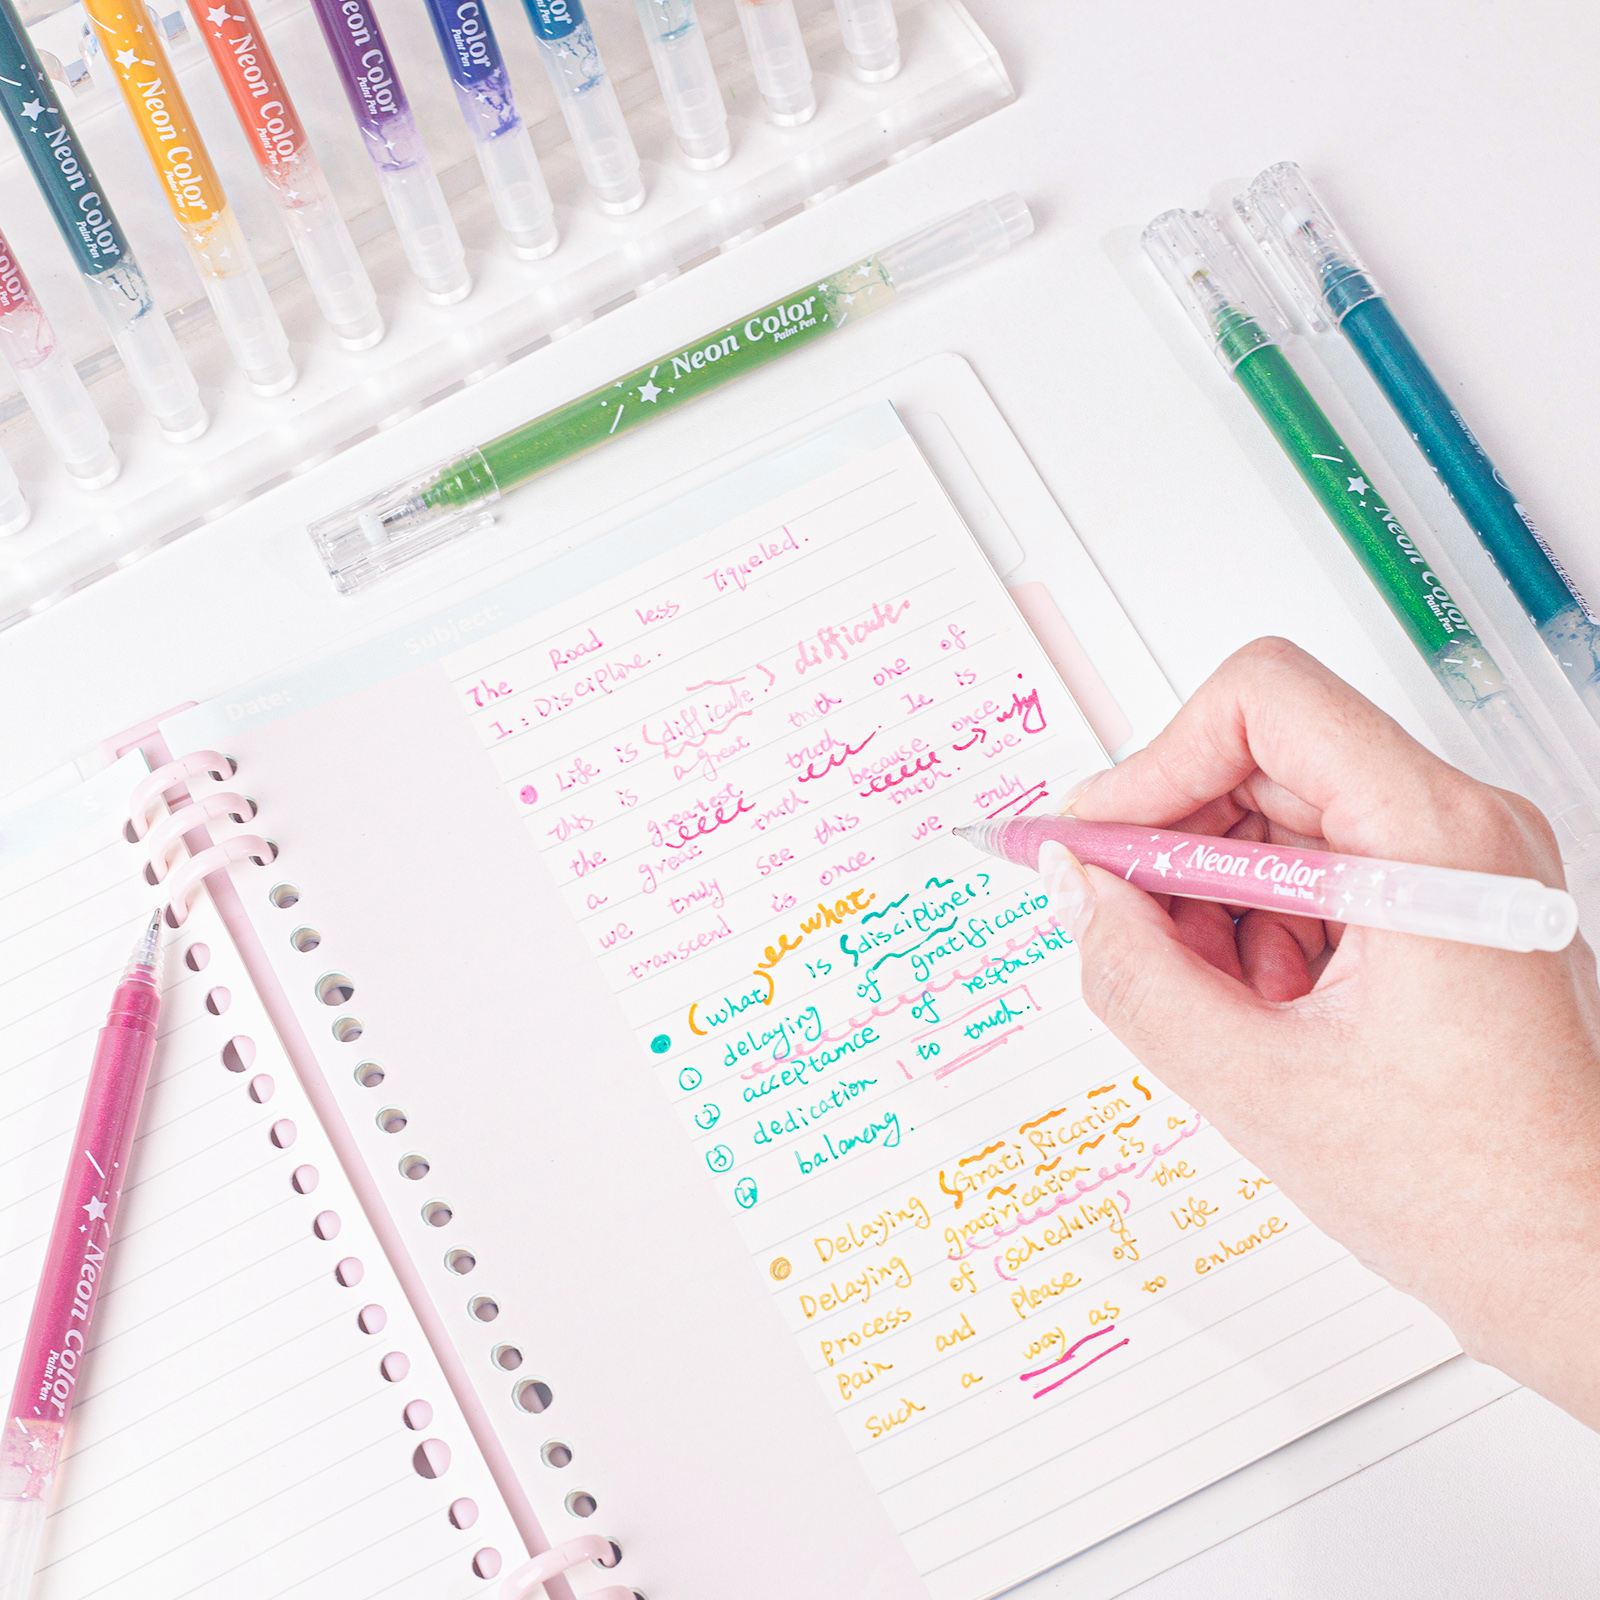 Neon Color
Paint Pen
Neon Color
Paint Pen
Neon Color
Paint Pen
Neon Color
Paint Pen
Color
Paint Pen
Color
Paint Pen
Neon Color
Paint Pen
Neon Color
Paint Pen
Neon Color
Paint Pen
Neon Color
Paint Pen
Subject:
Date:
The Road less Tiqueled.
1: Discipline.
Life is (difficute.) difficute.
this is a great truth one of
the greatest truth. It is
a great truth because once → why
we truly see this truth. we
transcend is once we truly
(what) ee what.
is (discipline)?
① delaying of gratificatio
② acceptamce of responsibit
③ dedication | to truch.|
④ balaneng.
Delaying (Grati Rication)
Delaying gratirication is a
process of (scheduling) the
pain and please of life in
such a way as to enhance